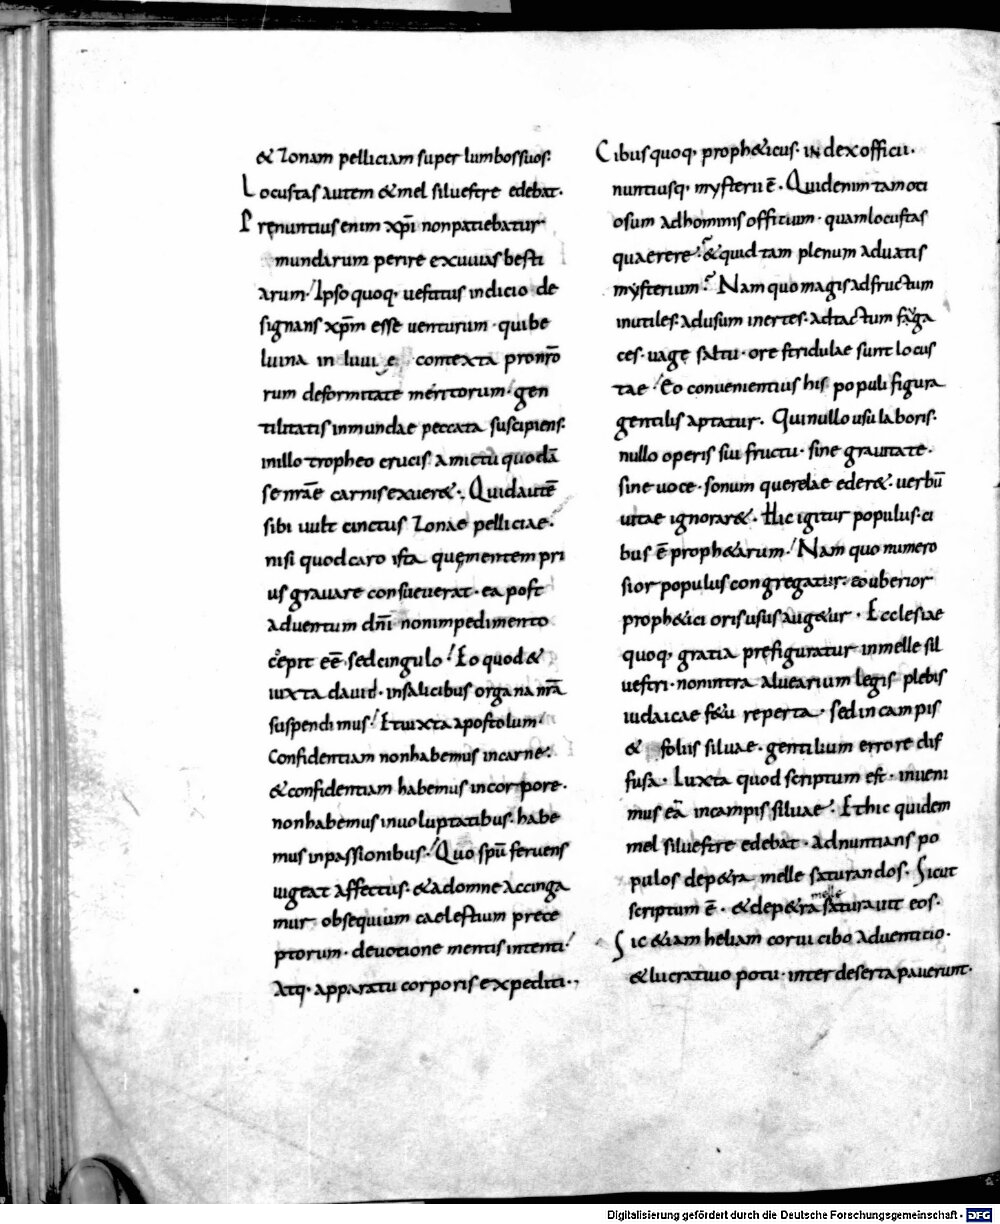 & zonam pelliciam super lumbos suos.
Locustas autem & mel siluestre edebat.
Prenuntius enim xp̄i non patiebatur
mundarum perire exuuias besti
arum. Ipso quoq. uestitus indicio de
signans xp̄m esse uenturum. qui be
luina in lui e contexta pro nr̄o
rum deformitate meritorum. gen
tilitatis inmundae peccata suscipiens.
in illo tropheo crucis. amictū quodā
se nr̄ae carnis exuer&. Quid autē
sibi uult cinctus zonae pelliciae.
nisi quod caro ista quę mentem pri
us grauare consueuerat. ea post
aduentum dn̄i non impedimento
cępit ee͞. sed cingulo. Eo quod &
iuxta dauid. in salicibus organa nr̄a
suspendimus. Et iuxta apostolum.
Confidentiam non habemus in carne.
& confidentiam habemus in corpore.
non habemus in uoluptatibus. habe
mus in passionibus. Quo spū feruens
uigeat affectus. & ad omne accinga
mur obsequium caelestium prece
ptorum. deuotione mentis intenti.
Atq. apparatu corporis expediti.,
Cibus quoq. proph&icus. index officii.
nuntiusq. mysterii ē. Quid enim tam oti
osum ad hominis officium. quam locustas
quaerere. & quid tam plenum ad uatis
mysterium. Nam quo magis ad fructum
inutiles. ad usum inertes. ad tactum fuga
ces. uagę saltu. ore stridulae sunt locus
tae. Eo conuenientius his populi figura
gentilis aptatur. Qui nullo usu laboris.
nullo operis sui fructu. sine grauitate.
sine uoce. sonum querelae eder&. uerbū
uitae ignorar&. Hic igitur populus. ci
bus ē proph&arum. Nam quo numero
sior populus congregatur. eo uberior
proph&ici oris usus aug&ur. Ecclesiae
quoq. gratia prefiguratur in melle sil
uestri. non intra aluearium legis plebis
iudaicae f&u reperta. sed in campis
& foliis siluae. gentilium errore dif
fusa. Iuxta quod scriptum est. inueni
mus eā in campis siluae. Et hic quidem
mel siluestre edebat. adnuntians po
pulos de p&ra melle saturandos. Sicut
scriptum ē. & de p&ra melle saturauit eos.
Sic &iam heliam corui cibo aduenticio.
& lucratiuo potu. inter deserta pauerunt.
Digitalisierung gefördert durch die Deutsche Forschungsgemeinschaft - DFG